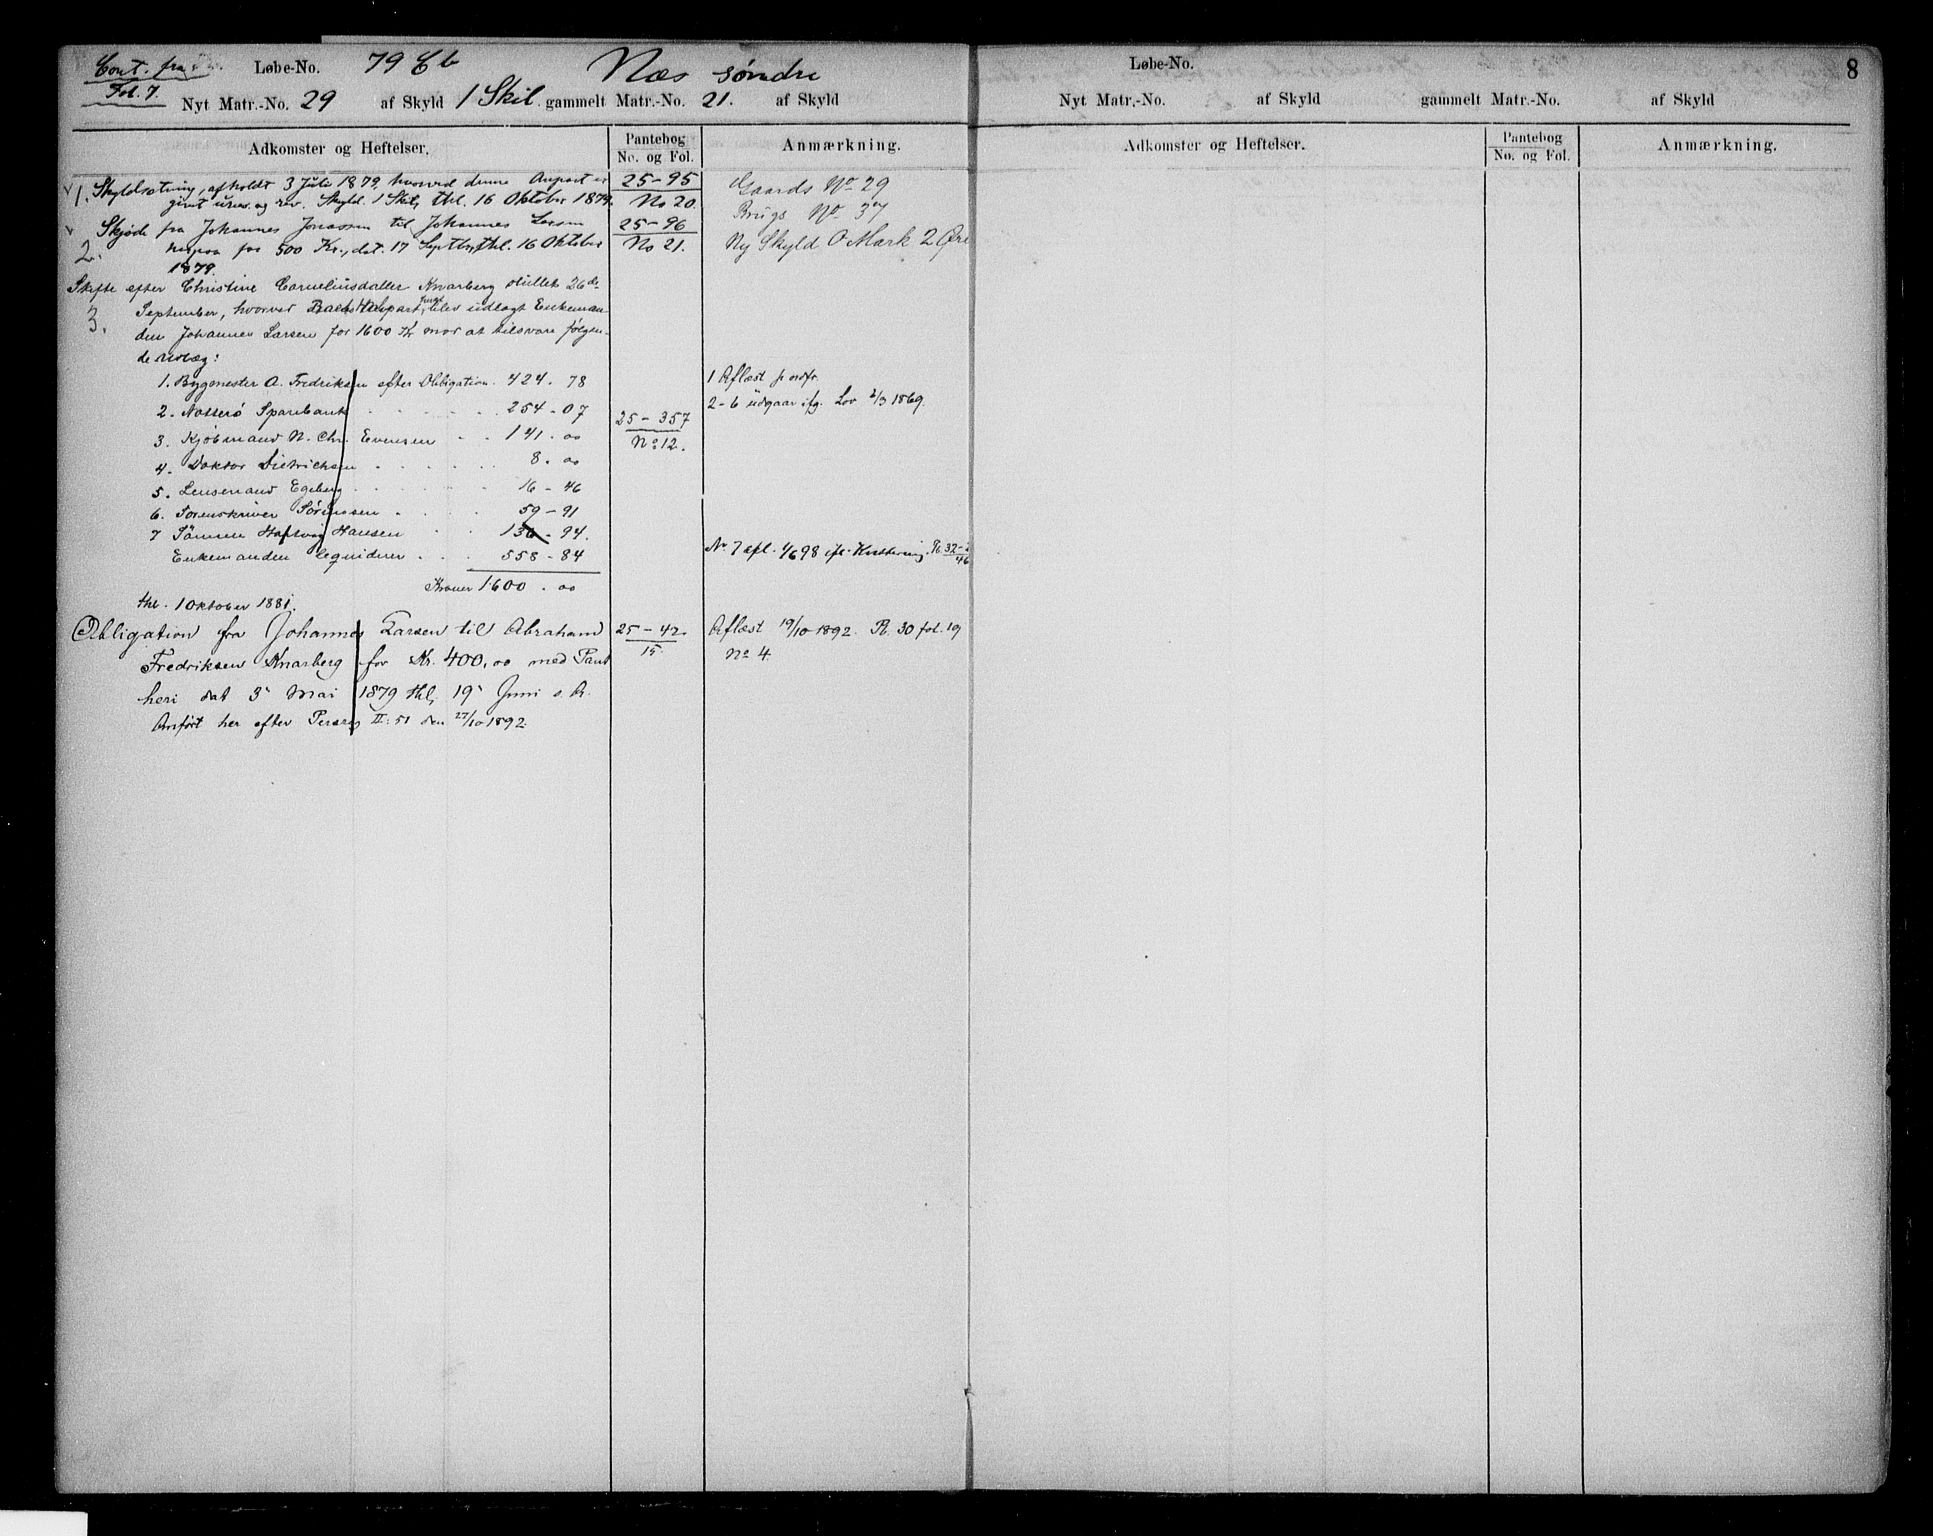 Cont. fra
Fol. 7.
Løbe-No. 79 Cb Næs søndre
Nyt Matr.-No. 29 af Skyld 1 Skil. gammelt Matr.-No. 21. af Skyld
Adkomster og Heftelser. Pantebog No. og Fol. Anmærkning.
1. Skyldsætning, afholdt 3 Juli 1879, hvorved denne Anpart er 25-95 Gaards No 29
givet urev. og rev. Skyld. 1 Skil, thl. 16 Oktober 1879. No 20. Brugs No 37
2. Skjøde fra Johannes Jonassen til Johannes Larsen 25-96
herpaa for 500 Kr., dat. 17 Septbr, thl. 16 Oktober No 21. Ny Skyld 0 Mark 2 Øre
1879.
3. Skifte efter Christine Corneliusdatter Knarberg sluttet 26de
September, hvorved Anpart blev udlagt Enkeman-
den Johannes Larsen for 1600 Kr mod at tilsvare følgen-
de Udlæg:
1. Bygmester A. Fredriksen efter Obligation. 424. 78 1 Aflæst
2. Nøtterø Sparebank 254-07 2-6 udgaar ifg. Lov 2/3 1869.
25-357
3. Kjøbmand N. Chr. Evensen 141. 00 No 12.
4. Doktor Dietrichsen 8. 00
5. Lensmand Egeberg 16-46
6. Sorenskriver Sørenssen 59-91
7 Tømmerm Hansen 136-94.
Enkemanden 558-84 No 7 afl. 4/6 98 ifl. Kvittering. Pb. 32-2
46
Kroner 1600. 00
thl. 1 Oktober 1881.
Obligation fra Johannes Larsen til Abraham 25-42 Aflæst 19/10 1892. P. 30 fol. 19
15.
Fredriksen Knarberg for Kr. 400,00 med Pant No 4.
heri dat 3 Mai 1879 thl, 19 Juni s. A.
Anført her efter II: 51 den 27/10 1892.
Løbe-No. 8
Nyt Matr.-No. af Skyld gammelt Matr.-No. af Skyld
Adkomster og Heftelser. Pantebog No. og Fol. Anmærkning.